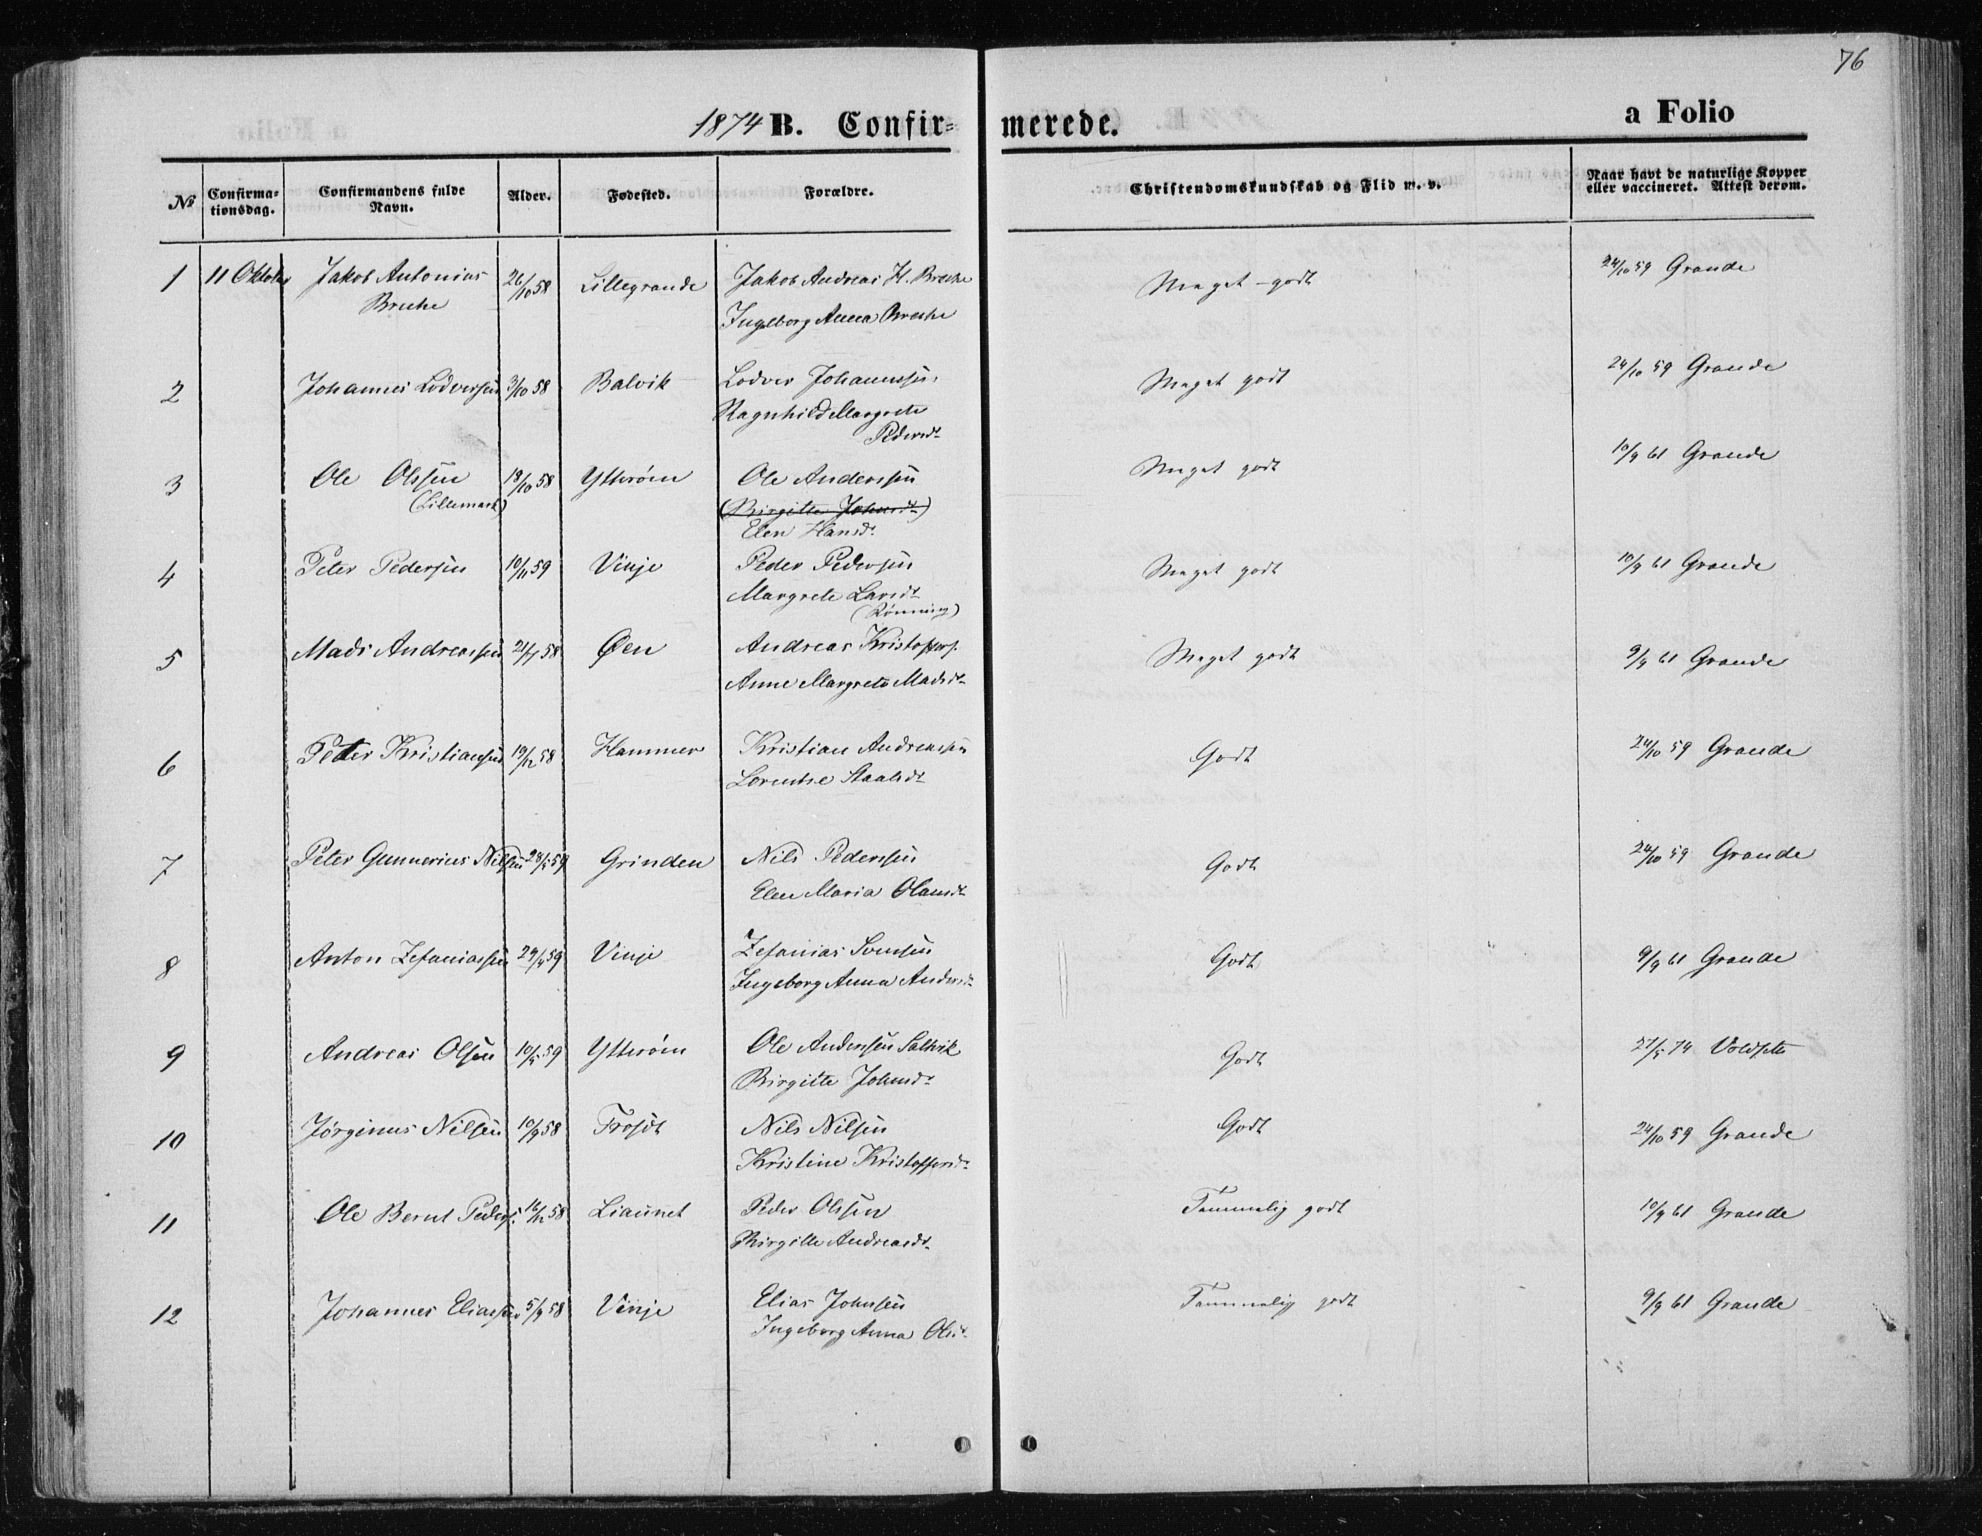 76
1874 B. Confir= merede.
a Folio
No
Confirma-
tionsdag.
Confirmandens fulde
Navn.
Alder.
Fødested.
Forældre.
Christendomskundskab og Flid m. v.
Naar havt de naturlige Kopper
eller vaccineret. Attest derom.
1 11 Oktober Jakob Antonius 26/10 58 Lillegrande Jakob Andreas H. Meget godt 24/10 59 Grande
Ingeborg Anna
2 Johannes Lodverssen 3/10 58 Balvik Lodver Johanness. Meget godt 24/10 59 Grande
Ragnhild Margrete
Pedersdt
3 Ole Olssen 18/10 58 Ytterøen Ole Anderssen Meget godt 10/9 61 Grande
(Lillemark) (Birgitte Johnsdt)
Elen Hansdt
4 Peter Pedersen 10/11 59 Vinje Peder Pedersen Meget godt 10/9 61 Grande
Margrete Larsdt
(Rønning)
5 Mads Andreassen 21/7 58 Øen Andreas Kristoffers. Meget godt 9/9 61 Grande
Anne Margrete Madsdt
6 Peter Kristiansen 19/12 58 Hammer Kristian Andreassen Godt 24/10 59 Grande
Lorentse Staalsdt
7 Peter Gunnerius Nilsen 28/5 59 Grinden Nils Pederssen Godt 24/10 59 Grande
Elen Maria Olausdt
8 Anton Zefaniassen 29/4 59 Vinje Zefanias Svensen Godt 9/9 61 Grande
Ingeborg Anna Andersdt
9 Andreas Olsen 10/5 59 Ytterøen Ole Andersen Saltvik Godt 27/5 74 Voldseth
Birgitte Johnsdt
10 Jörginus Nilsen 10/9 58 Trøsdt Nils Nilsen Godt 24/10 59 Grande
Kristine Kristoffersdt
11 Ole Bernt Peders. 16/12 58 Liaunet Peder Olssen Temmelig godt 10/9 61 Grande
Birgitte Andreasdt
12 Johannes Eliassen 5/9 58 Vinje Elias Johnsen Temmelig godt 9/9 61 Grande
Ingeborg Anna Olsdt